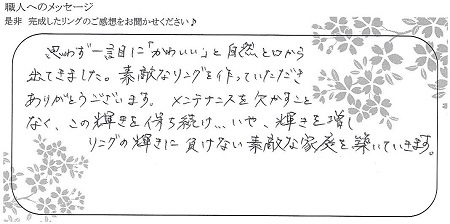 職人へのメッセージ
是非 完成したリングのご感想をお聞かせください♪
思わず一言目に「かわいい」と自然と口から
出てきました。素敵なリングを作っていただき
ありがとうございます。メンテナンスを欠かすこと
なく、この輝きを保ち続け…いや、輝きを増し
リングの輝きに負けない素敵な家庭を築いていきます。